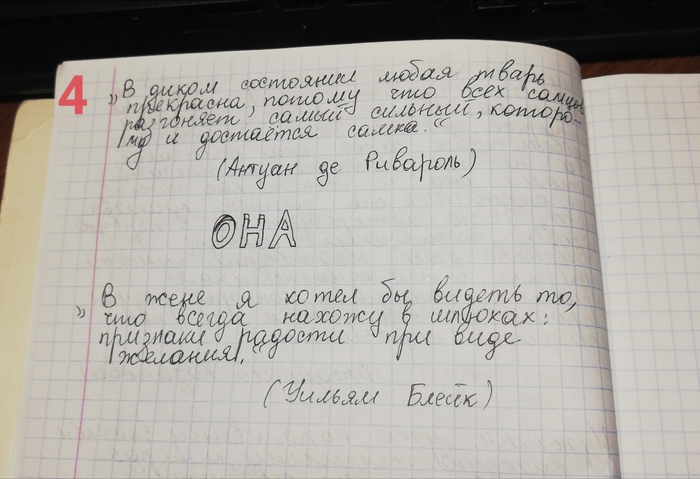 4
„В диком состоянии любая тварь
прекрасна, потому что всех самцов
разгоняет самый сильный, которо-
му и достаётся самка."
(Антуан де Ривароль)
ОНА
„В жене я хотел бы видеть то,
что всегда нахожу в шлюхах:
признаки радости при виде
желания."
(Уильям Блейк)